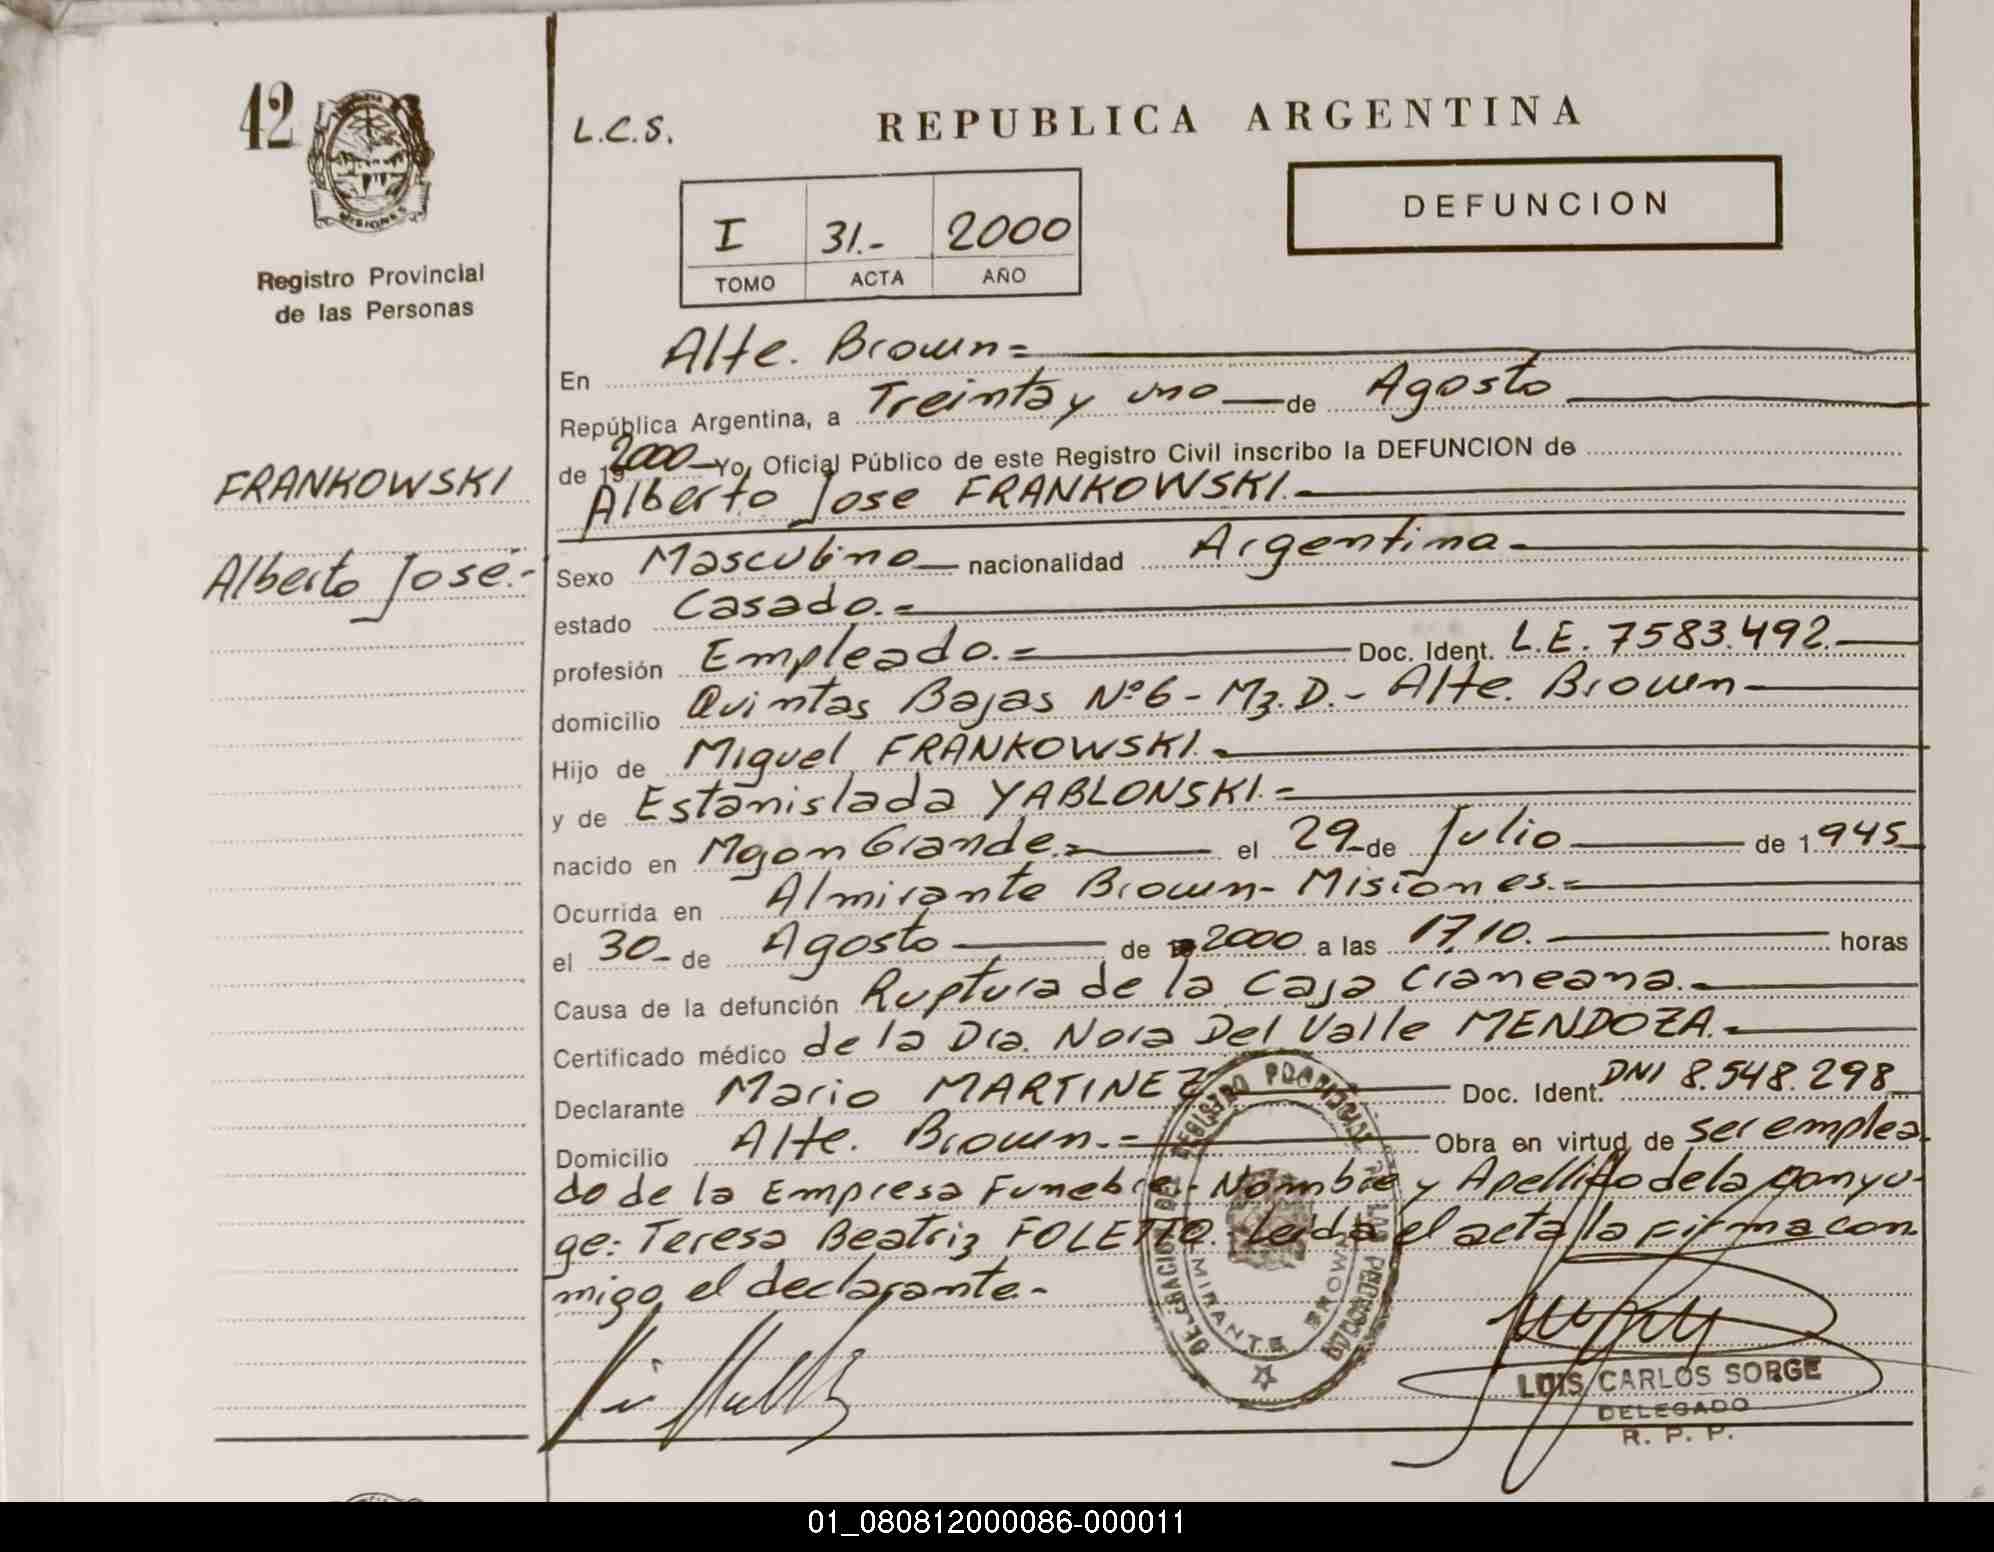 42
MISIONES
Registro Provincial
de las Personas
FRANKOWSKI
Alberto José.-
L.C.S.
REPUBLICA ARGENTINA
DEFUNCION
I 31.- 2000
TOMO ACTA AÑO
En Alte. Brown=
República Argentina, a Treinta y uno de Agosto
de 19 2000 Yo, Oficial Público de este Registro Civil inscribo la DEFUNCION de
Alberto Jose FRANKOWSKI.-
Sexo Masculino nacionalidad Argentina-
estado Casado.=
profesión Empleado.= Doc. Ident. L.E. 7583.492.
domicilio Quintas Bajas Nº6 - Mz. D.- Alte. Brown
Hijo de Miguel FRANKOWSKI.-
y de Estanislada YABLONSKI.=
nacido en Mojon Grande.= el 29 de Julio de 1.945
Ocurrida en Almirante Brown- Misiones.=
el 30 de Agosto de 2000 a las 17,10. horas
Causa de la defunción Ruptura de la Caja Craneana.-
Certificado médico de la Dra. Nora Del Valle MENDOZA.-
Declarante Mario MARTINEZ Doc. Ident. DNI 8.548.298
Domicilio Alte. Brown.= Obra en virtud de ser emplea
do de la Empresa Funebre.- Nombre y Apellido de la conyu-
ge: Teresa Beatriz FOLETTO. Leida el acta la firma con
migo el declarante.-
DELEGACION DEL REGISTRO PROVINCIAL DE LAS PERSONAS
ALMIRANTE BROWN
LUIS CARLOS SORGE
DELEGADO
R. P. P.
01_080812000086-000011